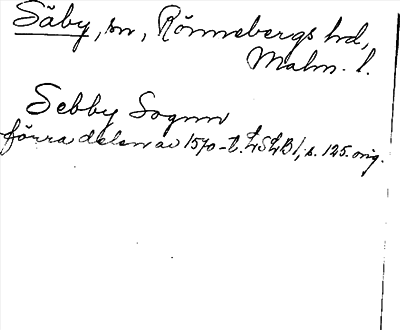 Säby, sn, Rönnebergs hd,
Malm. l.
Sebby Sognn
förra delen av 1570-t. LSLB 1, s. 125. orig.